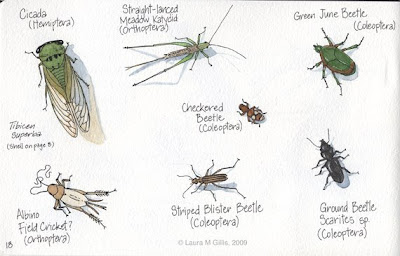 Cicada
(Hemiptera)
Tibicen
superba
(shell on page 5)
Straight-lanced
Meadow Katydid
(Orthoptera)
Green June Beetle
(Coleoptera)
Checkered
Beetle
(Coleoptera)
Albino
Field Cricket?
(Orthoptera)
Striped Blister Beetle
(Coleoptera)
Ground Beetle
Scarites sp.
(Coleoptera)
18
© Laura M Gillis, 2009